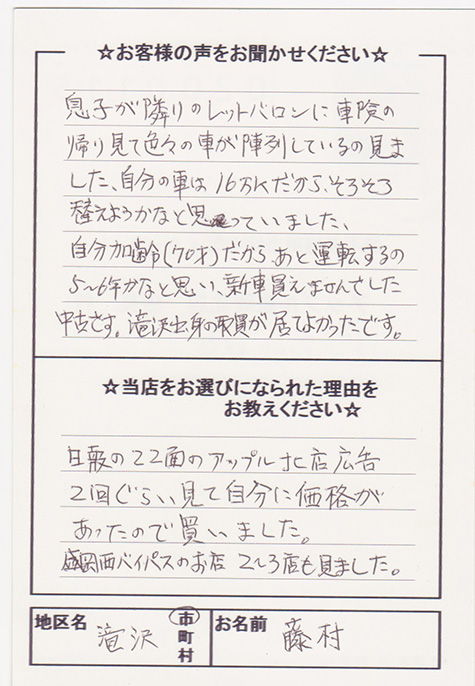 ☆お客様の声をお聞かせください☆
息子が隣りのレットバロンに車険の
帰り見て色々の車が陣列しているの見ま
した、自分の車は16万Kだから、そろそろ
替えようかなと思っていました、
自分加齢(70才)だから、あと運転するの
5〜6年かなと思い、新車買えませんでした
中古です。滝沢出身の社員が居てよかったです。
☆当店をお選びになられた理由を
お教えください☆
日報の22面のアップル北店広告
2回ぐらい、見て自分に価格が
あったので買いました。
盛岡西バイパスのお店 2〜3店も見ました。
地区名 滝沢 市 町 村 お名前 藤村